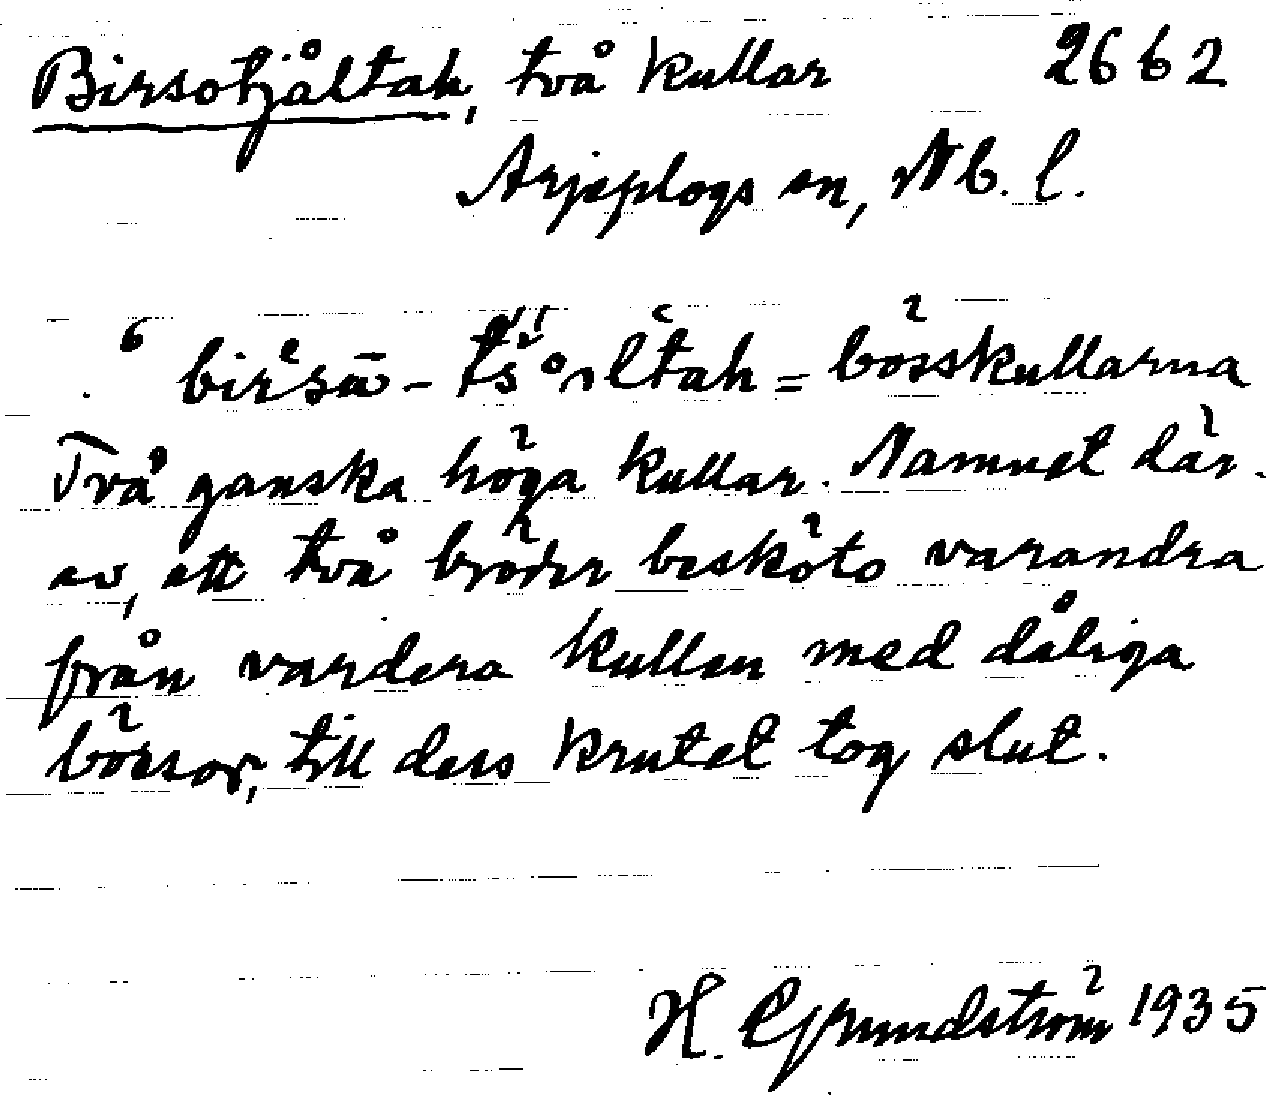 Birsotjåltah, två kullar 2662
Arjeplogs sn, Nb. l.
= bösskullarna
Två ganska höga kullar. Namnet där-
av, att två bröder besköto varandra
från vardera kullen med dåliga
bössor, till dess krutet tog slut.
H. Grundström 1935